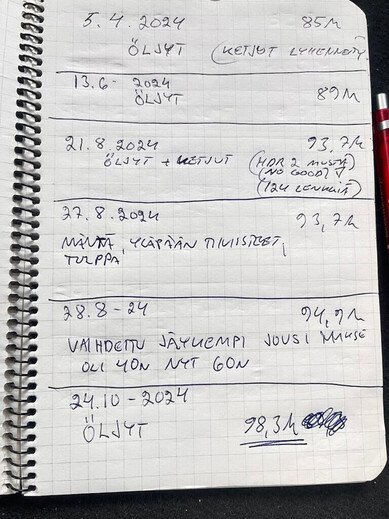 5.4.2024 85M
ÖLJYT (KETJUT LYHENNETTY)
13.6- 2024 89M
ÖLJYT
21.8.2024 93,7M
ÖLJYT + KETJUT (HDR 2 MUSTA)
(NO GOOD!)
(124 LENKKIÄ)
27.8.2024 93,7M
MÄNTÄ, YLÄPÄÄN TIIVISTEET,
TULPPA
28.8-24 94,9M
VAIHDETTU JÄYKEMPI JOUSI
OLI 40N NYT 60N
24.10-2024
ÖLJYT 98,3M